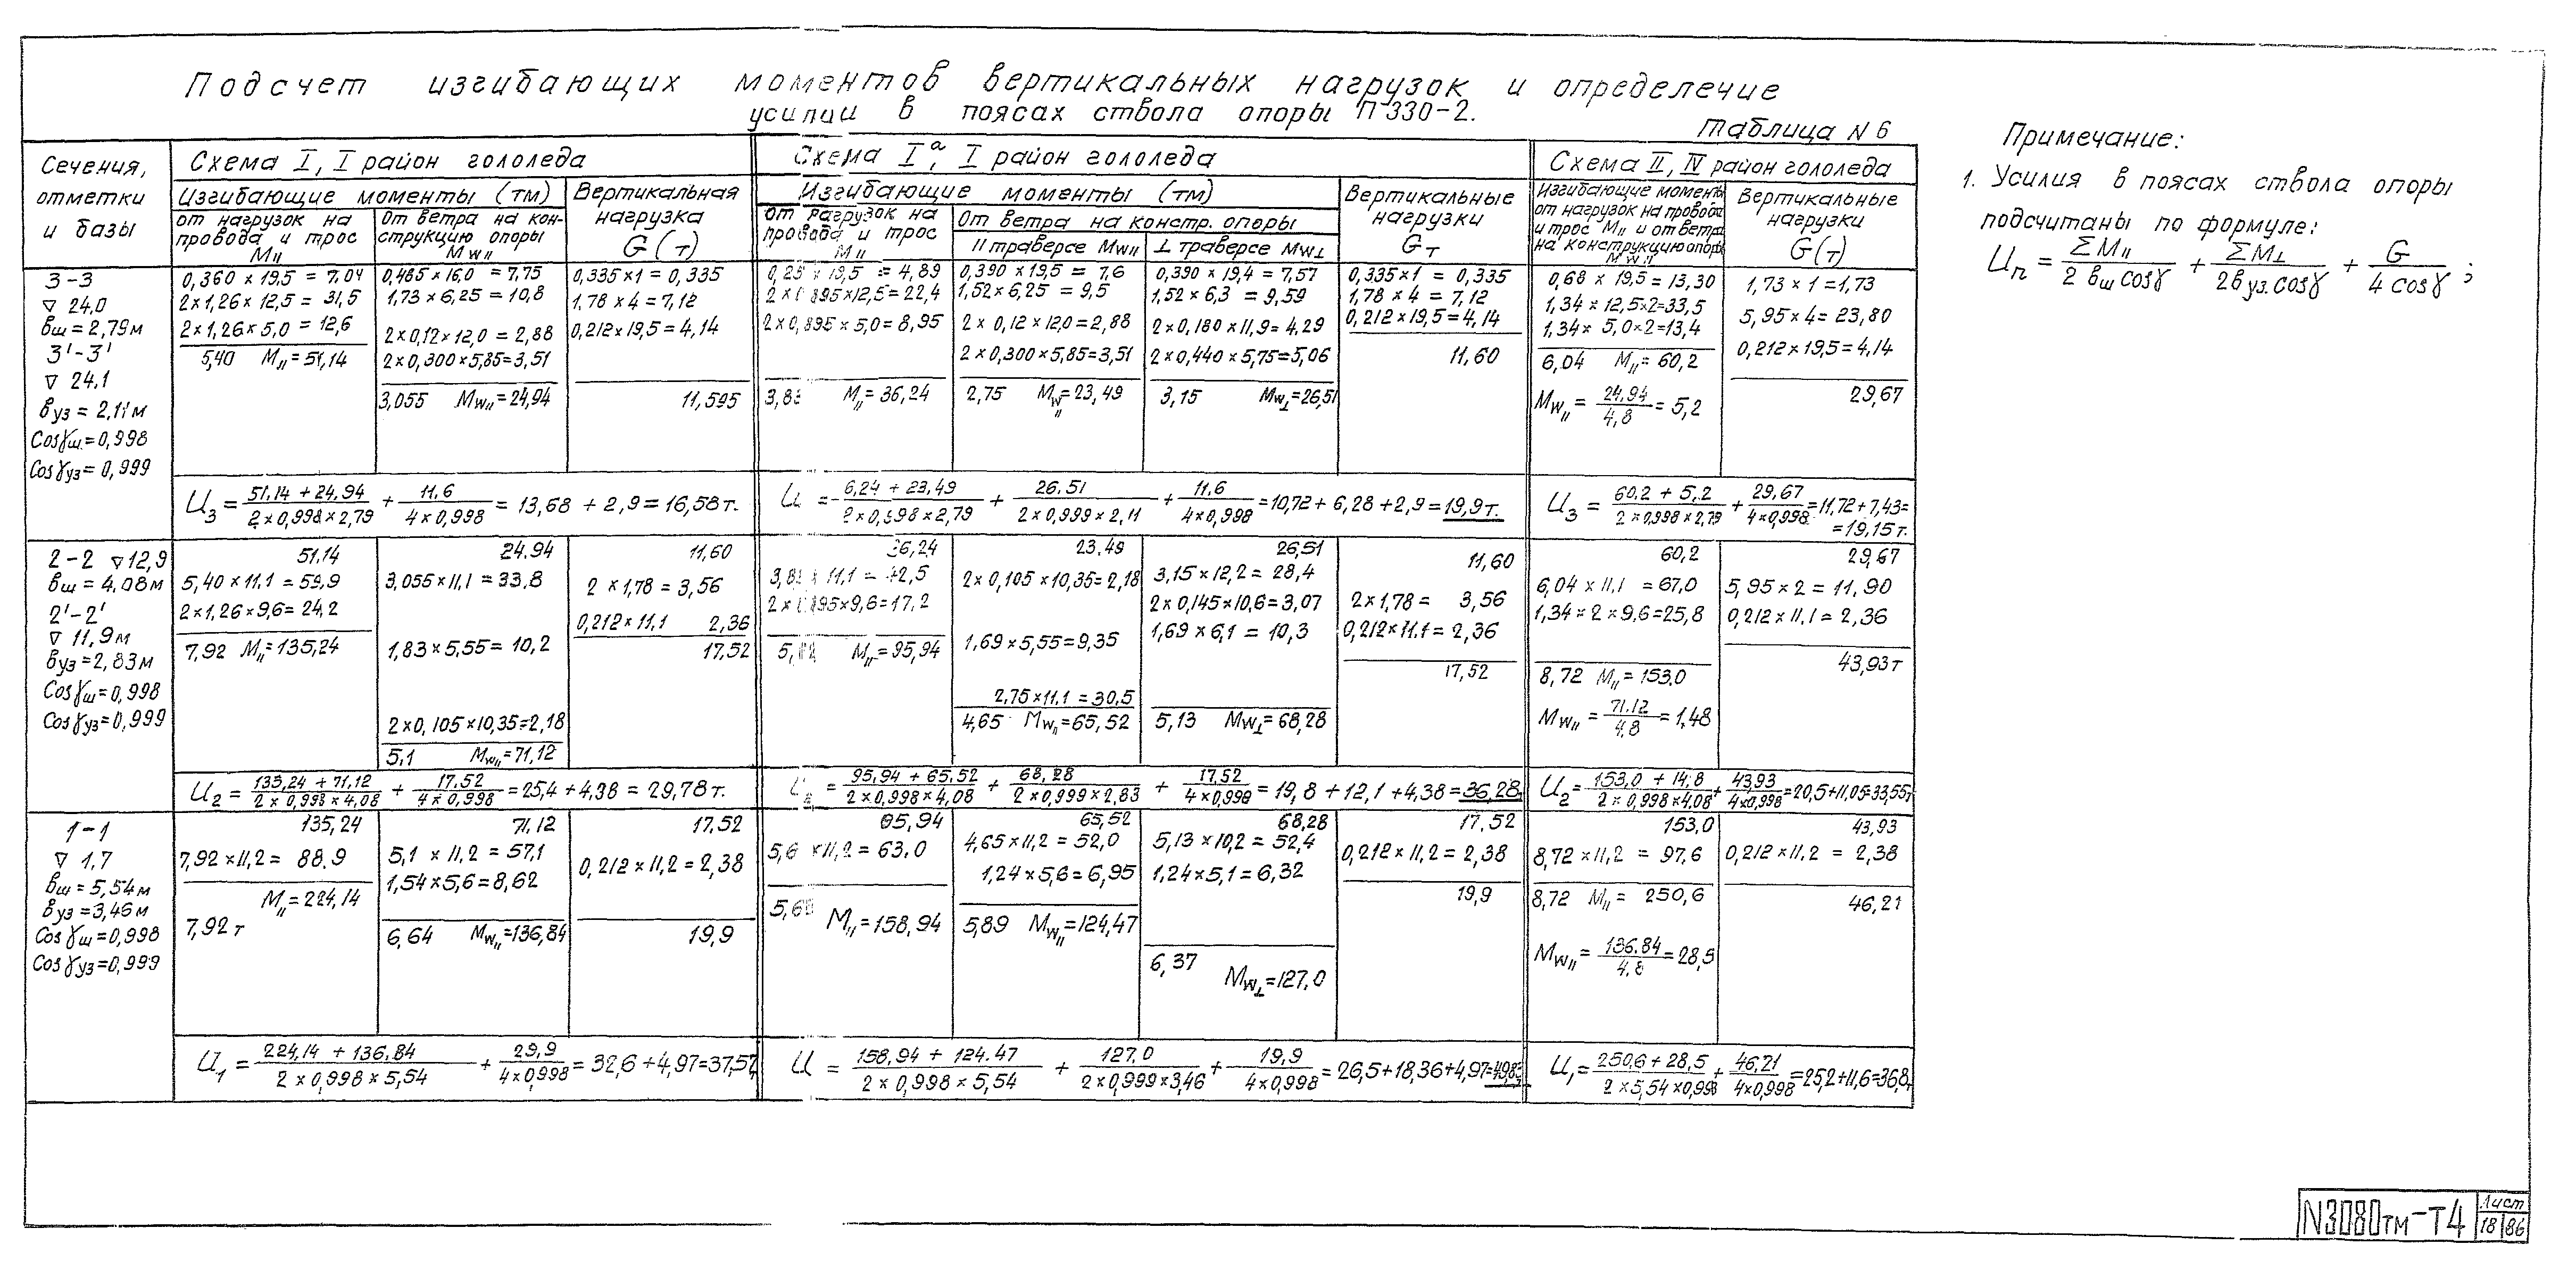 Подсчет изгибающих моментов вертикальных нагрузок и определение
усилий в поясах ствола опоры П330-2.
Таблица N 6
Сечения,
отметки
и базы
Схема I, I район гололеда
Изгибающие моменты (тм)
Вертикальная
нагрузка
G (т)
от нагрузок на
провода и трос
M//
От ветра на кон-
струкцию опоры
Mw//
Схема Iа, I район гололеда
Изгибающие моменты (тм)
От нагрузок на
провода и трос
M//
От ветра на констр. опоры
// траверсе Mw//
⊥ траверсе Mw⊥
Вертикальные
нагрузки
Gт
Схема II, IV район гололеда
Изгибающие моменты
от нагрузок на провода
и трос M// и от ветра
на конструкцию опоры
Mw//
Вертикальные
нагрузки
G(т)
3-3
∇ 24,0
вш = 2,79м
3'-3'
∇ 24,1
вуз = 2,11м
Cosγш = 0,998
Cosγуз = 0,999
0,360 × 19,5 = 7,04
2×1,26× 12,5 = 31,5
2×1,26×5,0 = 12,6
5,40 M// = 51,14
0,485×16,0 = 7,75
1,73 × 6,25 = 10,8
2×0,12×12,0 = 2,88
2×0,300×5,85=3,51
3,055 Mw// = 24,94
0,335×1 = 0,335
1,78 × 4 = 7,12
0,212×19,5=4,14
11,595
× 19,5 = 4,89
×12,5=22,4
2×0,895×5,0=8,95
M// = 36,24
0,390 ×19,5 = 7,6
1,52×6,25 = 9,5
2×0,12×12,0=2,88
2×0,300×5,85=3,51
2,75 Mw// = 23,49
0,390 × 19,4 = 7,57
1,52 × 6,3 = 9,59
2×0,180×11,9=4,29
2×0,440×5,75=5,06
3,15 Mw⊥ = 26,51
0,335×1 = 0,335
1,78 × 4 = 7,12
0,212×19,5=4,14
11,60
0,68 × 19,5 = 13,30
1,34 × 12,5×2=33,5
1,34× 5,0×2=13,4
6,04 M// = 60,2
Mw// = 24,94 / 4,8 = 5,2
1,73 × 1 = 1,73
5,95×4 = 23,80
0,212×19,5=4,14
29,67
U3 = (51,14 + 24,94) / (2×0,998×2,79) + 11,6 / (4×0,998) = 13,68 + 2,9 = 16,58т.
U = 6,24 + 23,49 / 2×0,998×2,79 + 26,51 / (2×0,999×2,11) + 11,6 / (4×0,998) = 10,72+6,28+2,9=19,9т.
U3 = (60,2 + 5,2) / (2×0,998×2,79) + 29,67 / (4×0,998) = 11,72+7,43=
=19,15т.
2-2 ∇12,9
вш = 4,08м
2'-2'
∇ 11,9м
вуз=2,83м
Cosγш=0,998
Cosγуз=0,999
51,14
5,40 ×11,1 = 59,9
2×1,26×9,6= 24,2
7,92 M// = 135,24
24,94
3,055×11,1 = 33,8
1,83×5,55= 10,2
2×0,105×10,35=2,18
5,1 Mw// = 71,12
11,60
2 × 1,78 = 3,56
0,212×11,1 2,36
17,52
36,24
× 11,1 = 42,5
×9,6=17,2
M// = 95,94
23,49
2×0,105×10,35=2,18
1,69×5,55=9,35
2,75×11,1 = 30,5
4,65 Mw// = 65,52
26,51
3,15×12,2 = 28,4
2×0,145×10,6=3,07
1,69×6,1 = 10,3
5,13 Mw⊥ = 68,28
11,60
2×1,78 = 3,56
0,212×11,1= 2,36
17,52
60,2
6,04 × 11,1 = 67,0
1,34×2×9,6=25,8
8,72 M// = 153,0
Mw// = 71,12 / 4,8 = 1,48
29,67
5,95×2 = 11,90
0,212×11,1= 2,36
43,93т
U2 = (135,24 + 71,12) / (2×0,998×4,08) + 17,52 / (4×0,998) = 25,4 + 4,38 = 29,78т.
(95,94 + 65,52) / (2×0,998×4,08) + 68,28 / (2×0,999×2,83) + 17,52 / (4×0,998) = 19,8 + 12,1 + 4,38 = 36,28
U2 = (153,0 + 14,8) / (2×0,998×4,08) + 43,93 / (4×0,998) = 20,5+11,05=33,55т
1-1
∇ 1,7
вш = 5,54м
вуз = 3,46м
Cosγш=0,998
Cosγуз=0,999
135,24
7,92×11,2= 88,9
M// = 224,14
7,92т
71,12
5,1 × 11,2 = 57,1
1,54×5,6=8,62
6,64 Mw// = 136,84
17,52
0,212×11,2 = 2,38
19,9
95,94
×11,2 = 63,0
M// = 158,94
65,52
4,65×11,2 = 52,0
1,24×5,6 = 6,95
5,89 Mw// = 124,47
68,28
5,13×10,2 = 52,4
1,24×5,1 = 6,32
6,37 Mw⊥ = 127,0
17,52
0,212×11,2 = 2,38
19,9
153,0
8,72×11,2 = 97,6
8,72 M// = 250,6
Mw// = 136,84 / 4,8 = 28,5
43,93
0,212×11,2 = 2,38
46,21
U1 = (224,14 + 136,84) / (2×0,998×5,54) + 29,9 / (4×0,998) = 32,6+4,97=37,57
U = (158,94 + 124,47) / (2×0,998×5,54) + 127,0 / (2×0,999×3,46) + 19,9 / (4×0,998) = 26,5+18,36+4,97=49,83
U1 = (250,6 + 28,5) / (2×5,54×0,998) + 46,21 / (4×0,998) = 25,2+11,6=36,8
Примечание:
1. Усилия в поясах ствола опоры
подсчитаны по формуле:
Uп = ΣM// / (2 вш cosγ) + ΣM⊥ / (2вуз. cosγ) + G / (4 cosγ) ;
N3080тм-Т4
Лист
18 86